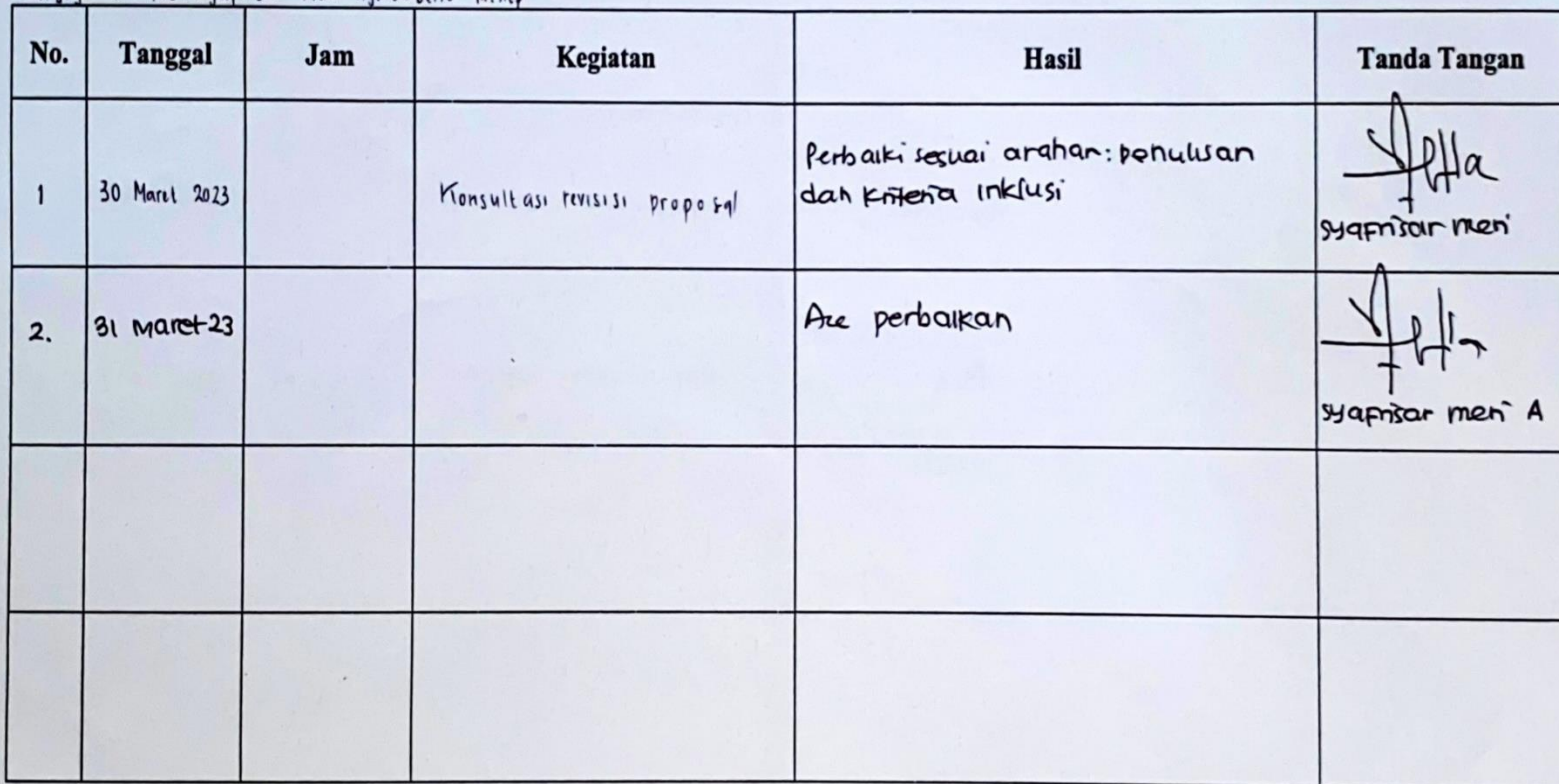 No. Tanggal Jam Kegiatan Hasil Tanda Tangan
1 30 Maret 2023 Konsultasi revisisi proposal Perbaiki sesuai arahan: penulisan
dan kriteria inklusi
syafrisar meri
2. 31 Maret 23 Acc perbaikan
syafrisar meri A